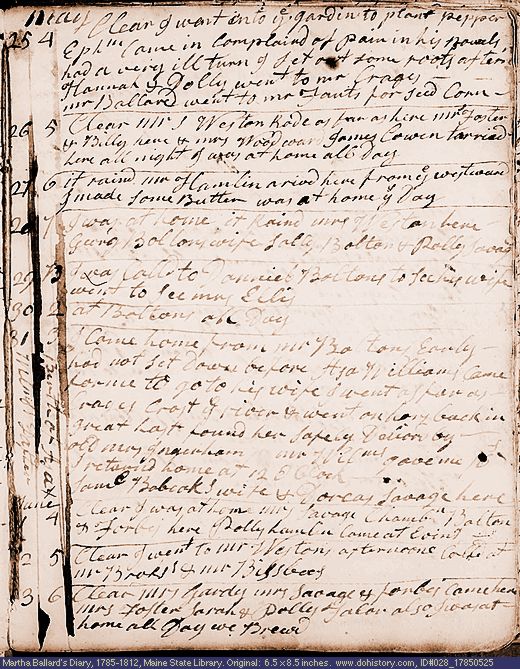 may
25 4 Clear I went into ye gardin to plant pepper
Ephm Came in complaind of pain in his Bowels
had a very ill turn I Set out some roots aftern
Hannah & Dolly went to mr Crages
mr Ballard went to mr for Seed Corn
26 5 Clear mr S Weston Rode as far as hire mrs Foster
& Billy here & mrs Woodward James Cowen tarried
here all night I was at home all Day
27 6 it raind mr Hamlin arivd here from ye westward
I made Some Butter was at home ye Day
28 I was at home it Raind mrs Weston here
Georg Boltons wife Sally Bolton & Polly Savage
29 I was Calld to Danniel Boltons to See his wife
went to See mrs Ellis
30 2 at Boltons all Day
31 I Came home from mr Boltons Early
had not Set down before Asa Williams Came
for me to go to his wife I went as far as
Crages Crost ye river & went on hors back in
great hast found her Safely Delivrd by
old mrs Ingerham mr Wms gave me
I returnd home at 12 O Clock
Saml Babcoks wife & Dorcas Savage here
June
4 Clear I was at hom mrs Savage Chambn Bolton
& Forbes here Polly hamlin Came at Evint
2 5 Clear I went to mr Westons afternoone at
mr Brooks & mr
3 6 Clear mrs Hardy mrs Savage & forbes Came here
mrs Foster Sarah & Polly also I was at
home all Day we Brewd
Martha Ballard's Diary, 1785-1812, Maine State Library. Original: 6.5 x 8.5 inches. www.dohistory.com, ID#028_17850525